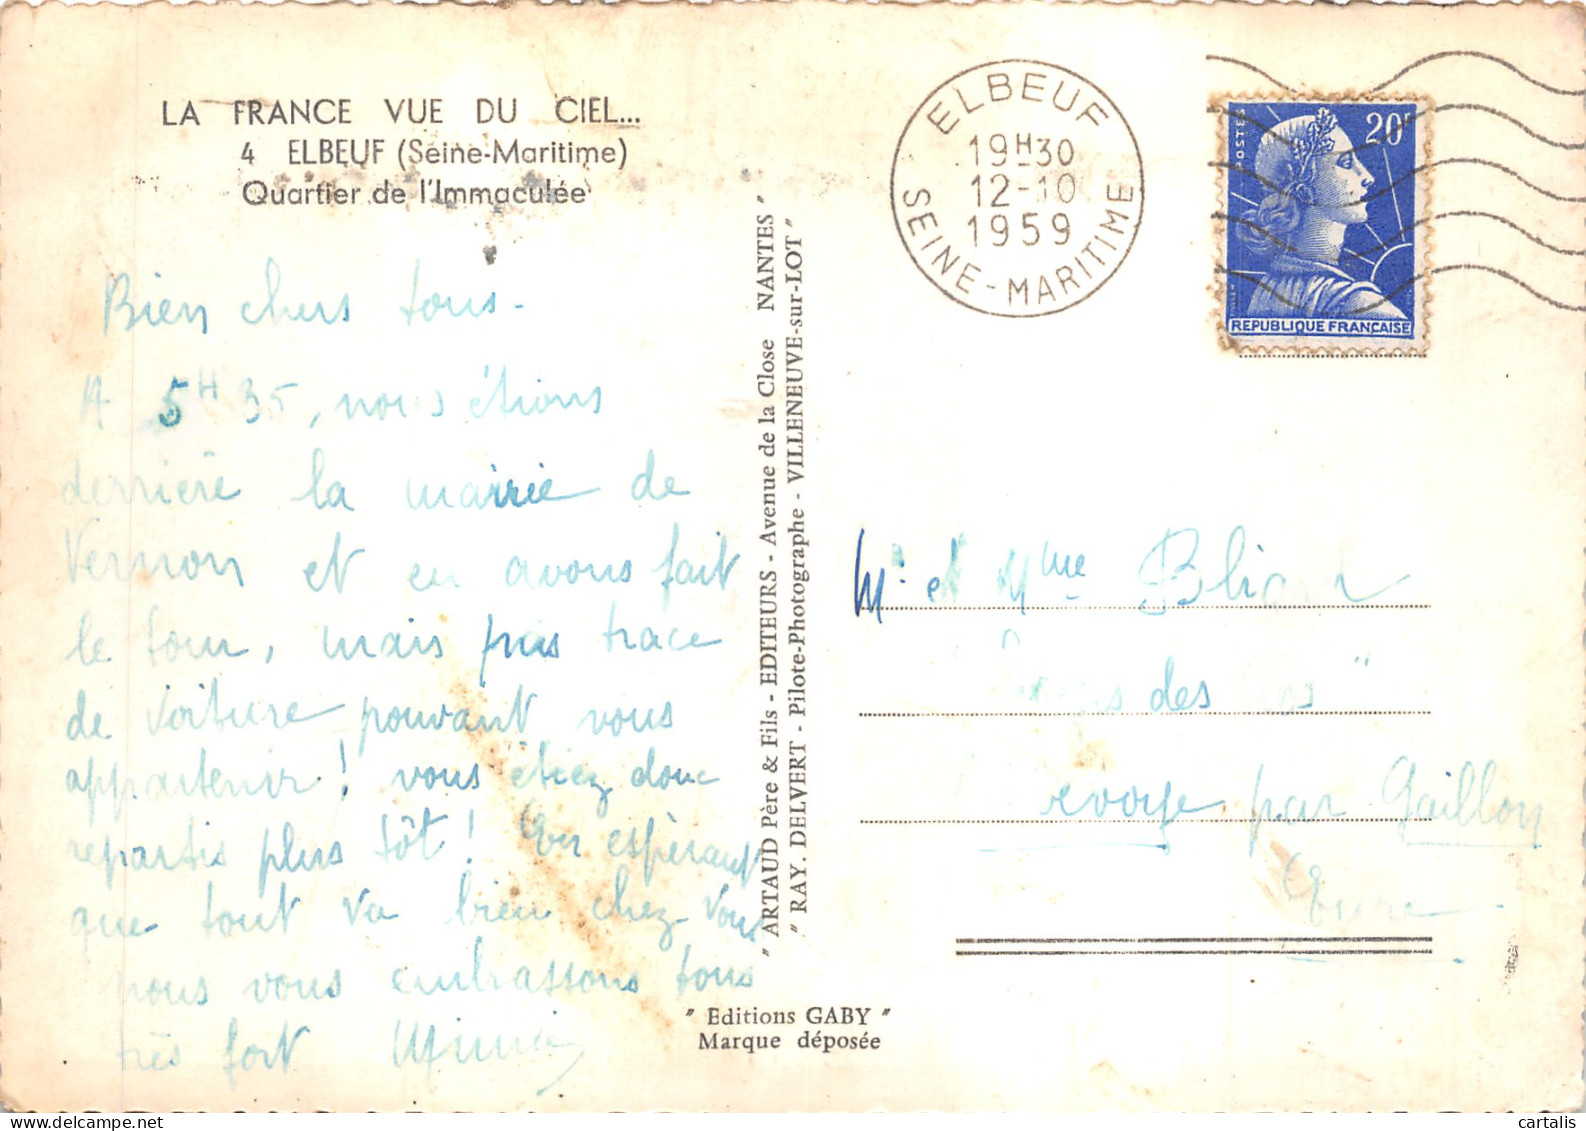 LA FRANCE VUE DU CIEL...
4 ELBEUF (Seine-Maritime)
Quartier de l'Immaculée
Bien chers tous -
A 5H35, nous étions
derrière la mairie de
Vernon et en avons fait
le tour, mais pas trace
de voiture pouvant vous
appartenir ! vous étiez donc
repartis plus tôt ! En espérant
que tout va bien chez vous
nous vous embrassons tous
très fort Mimi
" ARTAUD Père & Fils - EDITEURS - Avenue de la Close NANTES "
" RAY. DELVERT - Pilote-Photographe - VILLENEUVE-sur-LOT "
" Editions GABY "
Marque déposée
ELBEUF
19H30
12-10
1959
SEINE-MARITIME
POSTES
20F
REPUBLIQUE FRANÇAISE
Mr et Mme
des
par Gaillon
Eure
cartalis